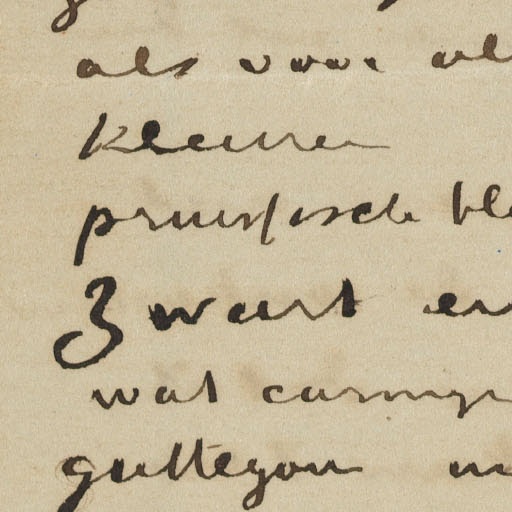 als voor al
kleuren
pruissisch bl
Zwart en
wat carmyn
guttegom